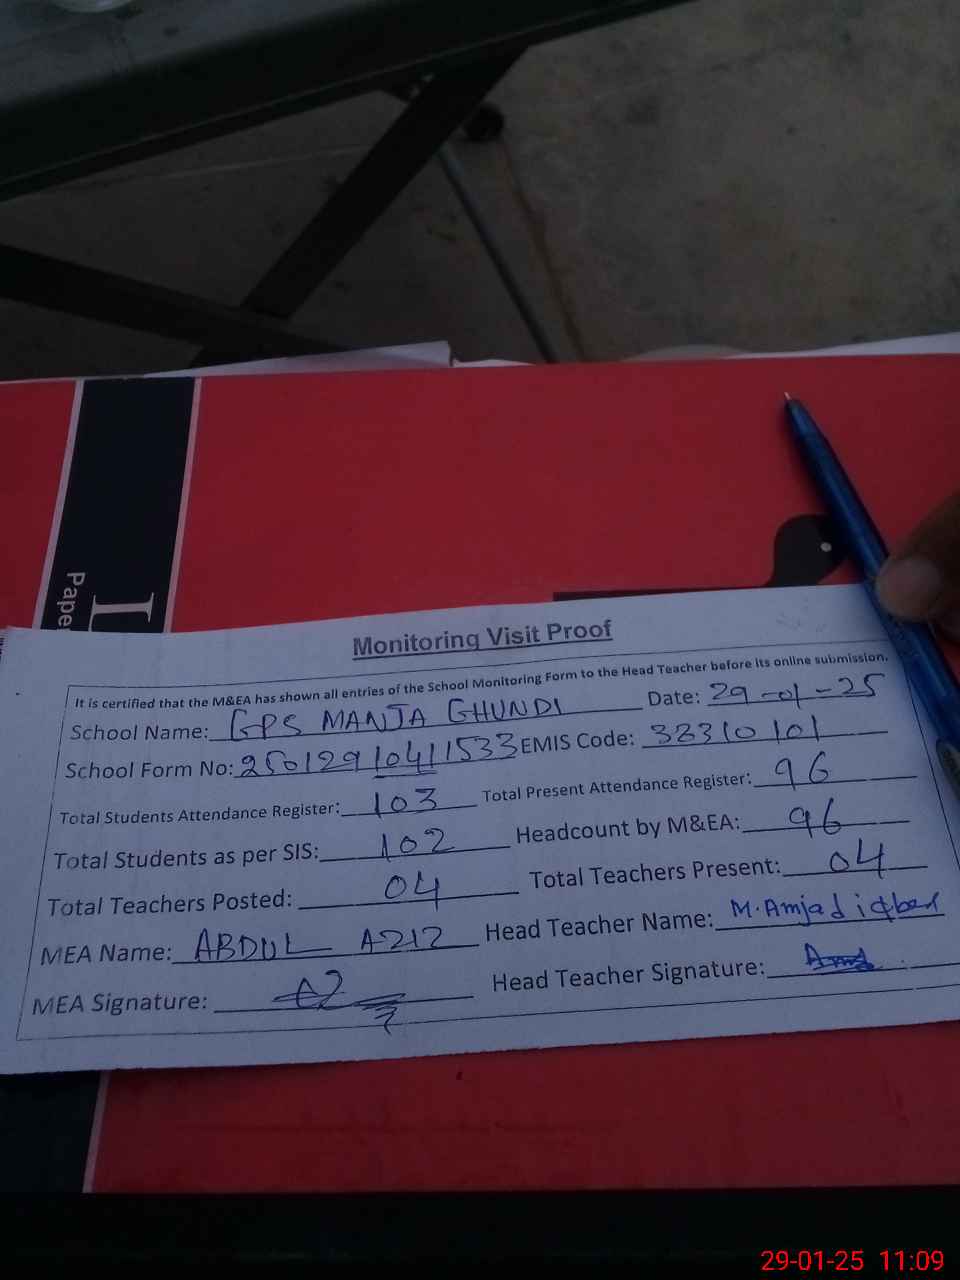 Pape
L
Monitoring Visit Proof
It is certified that the M&EA has shown all entries of the School Monitoring Form to the Head Teacher before its online submission.
School Name: GPS MANJA GHUNDI Date: 29-01-25
School Form No: 25012910411533 EMIS Code: 38310101
Total Students Attendance Register: 103 Total Present Attendance Register: 96
Total Students as per SIS: 102 Headcount by M&EA: 96
Total Teachers Posted: 04 Total Teachers Present: 04
MEA Name: ABDUL AZIZ Head Teacher Name: M. Amjad iqbal
MEA Signature: Head Teacher Signature:
29-01-25 11:09